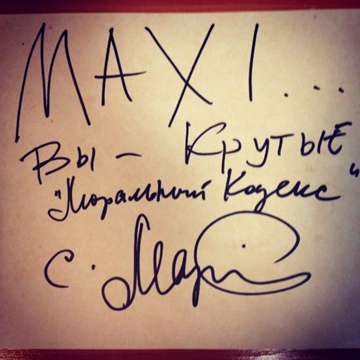 MAXI...
Вы - Крутые
"Моральный Кодекс"
С. Мазаев